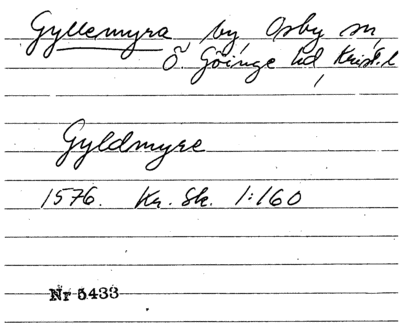 Gyllemyra by, Osby sn,
Ö. Göinge hd, Krist. l
Gyldmyre
1576. Kr. Sk. 1:160
Nr 5433